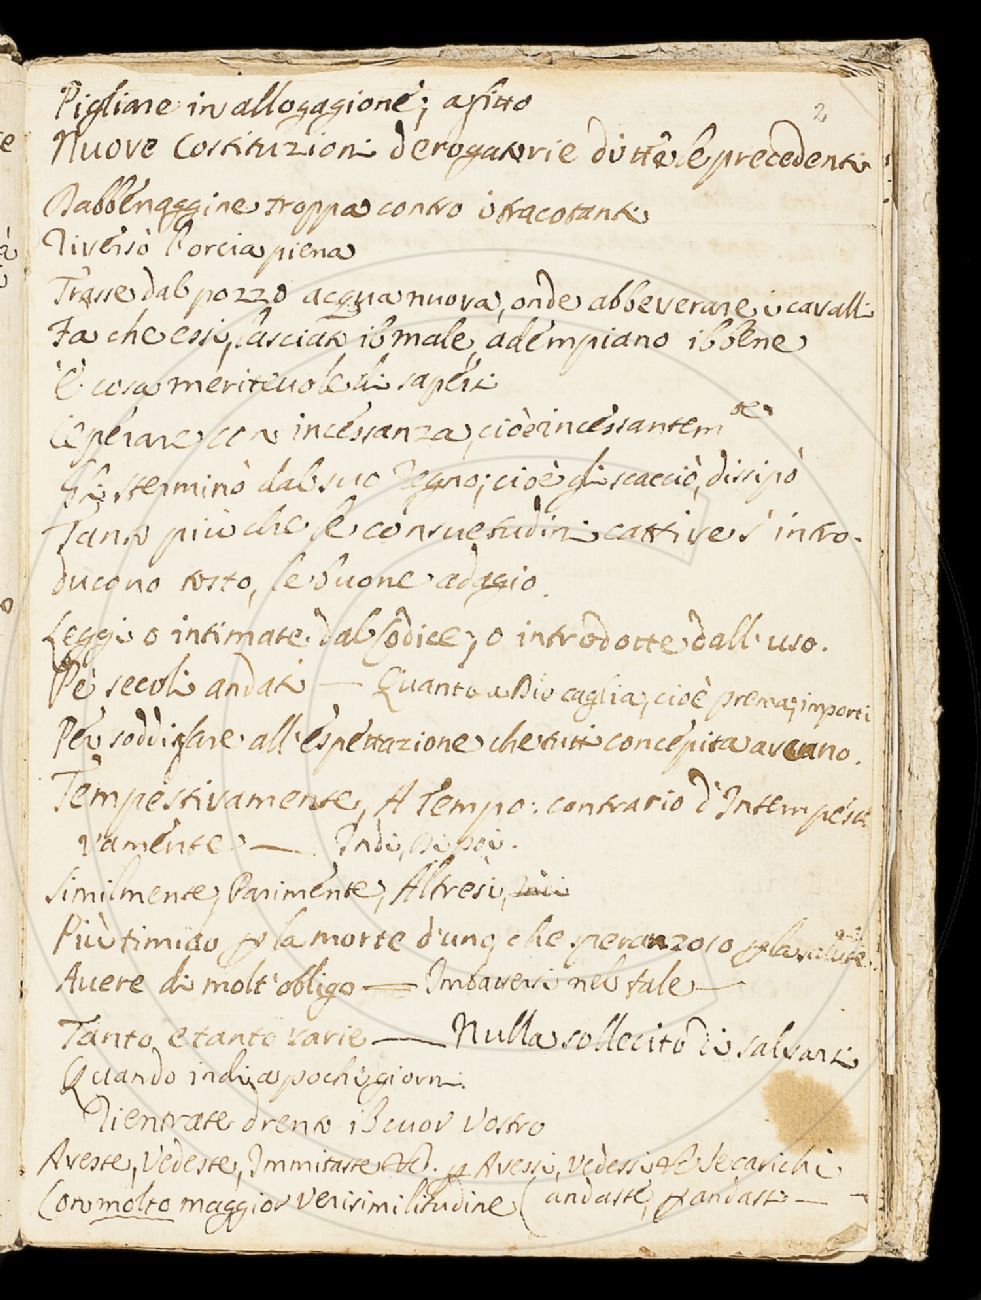 2
Pigliare in allogagione; a fitto
Nuove Costituzioni derogatorie di tte le precedenti
Dabbenaggine troppa contro i tracotanti
Riversò l'orcia piena
Trasse dal pozzo acqua nuova, onde abbeverare i cavalli
Fa che essi, lasciati il male, adempiano il bene
È cosa meritevole di sapersi
con incessanza, cioè incessantem.te
Gli sterminò dal suo Regno; cioè gli scacciò, dissipò
Tanto più che le consuetudini cattive s'intro-
ducono tosto, le buone adagio.
Leggi o intimate dal Codice, o introdotte dall'uso.
Pe' secoli andati — Quanto a Dio caglia, cioè prema, importi
Per soddisfare all'espettazione che tutti concepita aveano.
Tempestivamente, A Tempo: contrario d'Intempesti
vamente — Indi, Di poi.
Similmente, Parimente, Altresì,
Più timido p la morte d'uno, che speranzoso p la salute
Avere di molt'obligo — Imbattersi nel tale —
Tanto, e tanto varie — Nulla sollecito di salvarsi
Quando indi a pochi giorni
Rientrate drento il cuor vostro
Aveste, Vedeste, Immitaste &c. p Avessi, vedessi &c.
Con molto maggior verisimilitudine (andaste, p andasti —